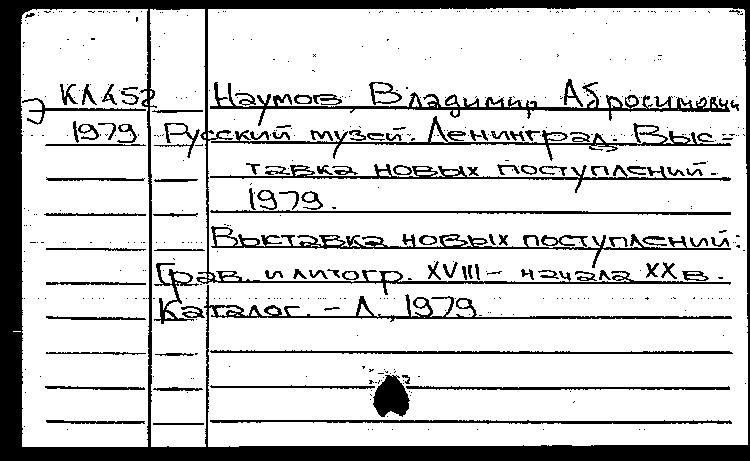 КЛ452 Наумов, Владимир Абросимович
1979 Русский музей. Ленинград. Выс-
тавка новых поступлений.
1979.
Выставка новых поступлений:
Грав. и литогр. XVIII - начала XX в.
Каталог. - Л., 1979